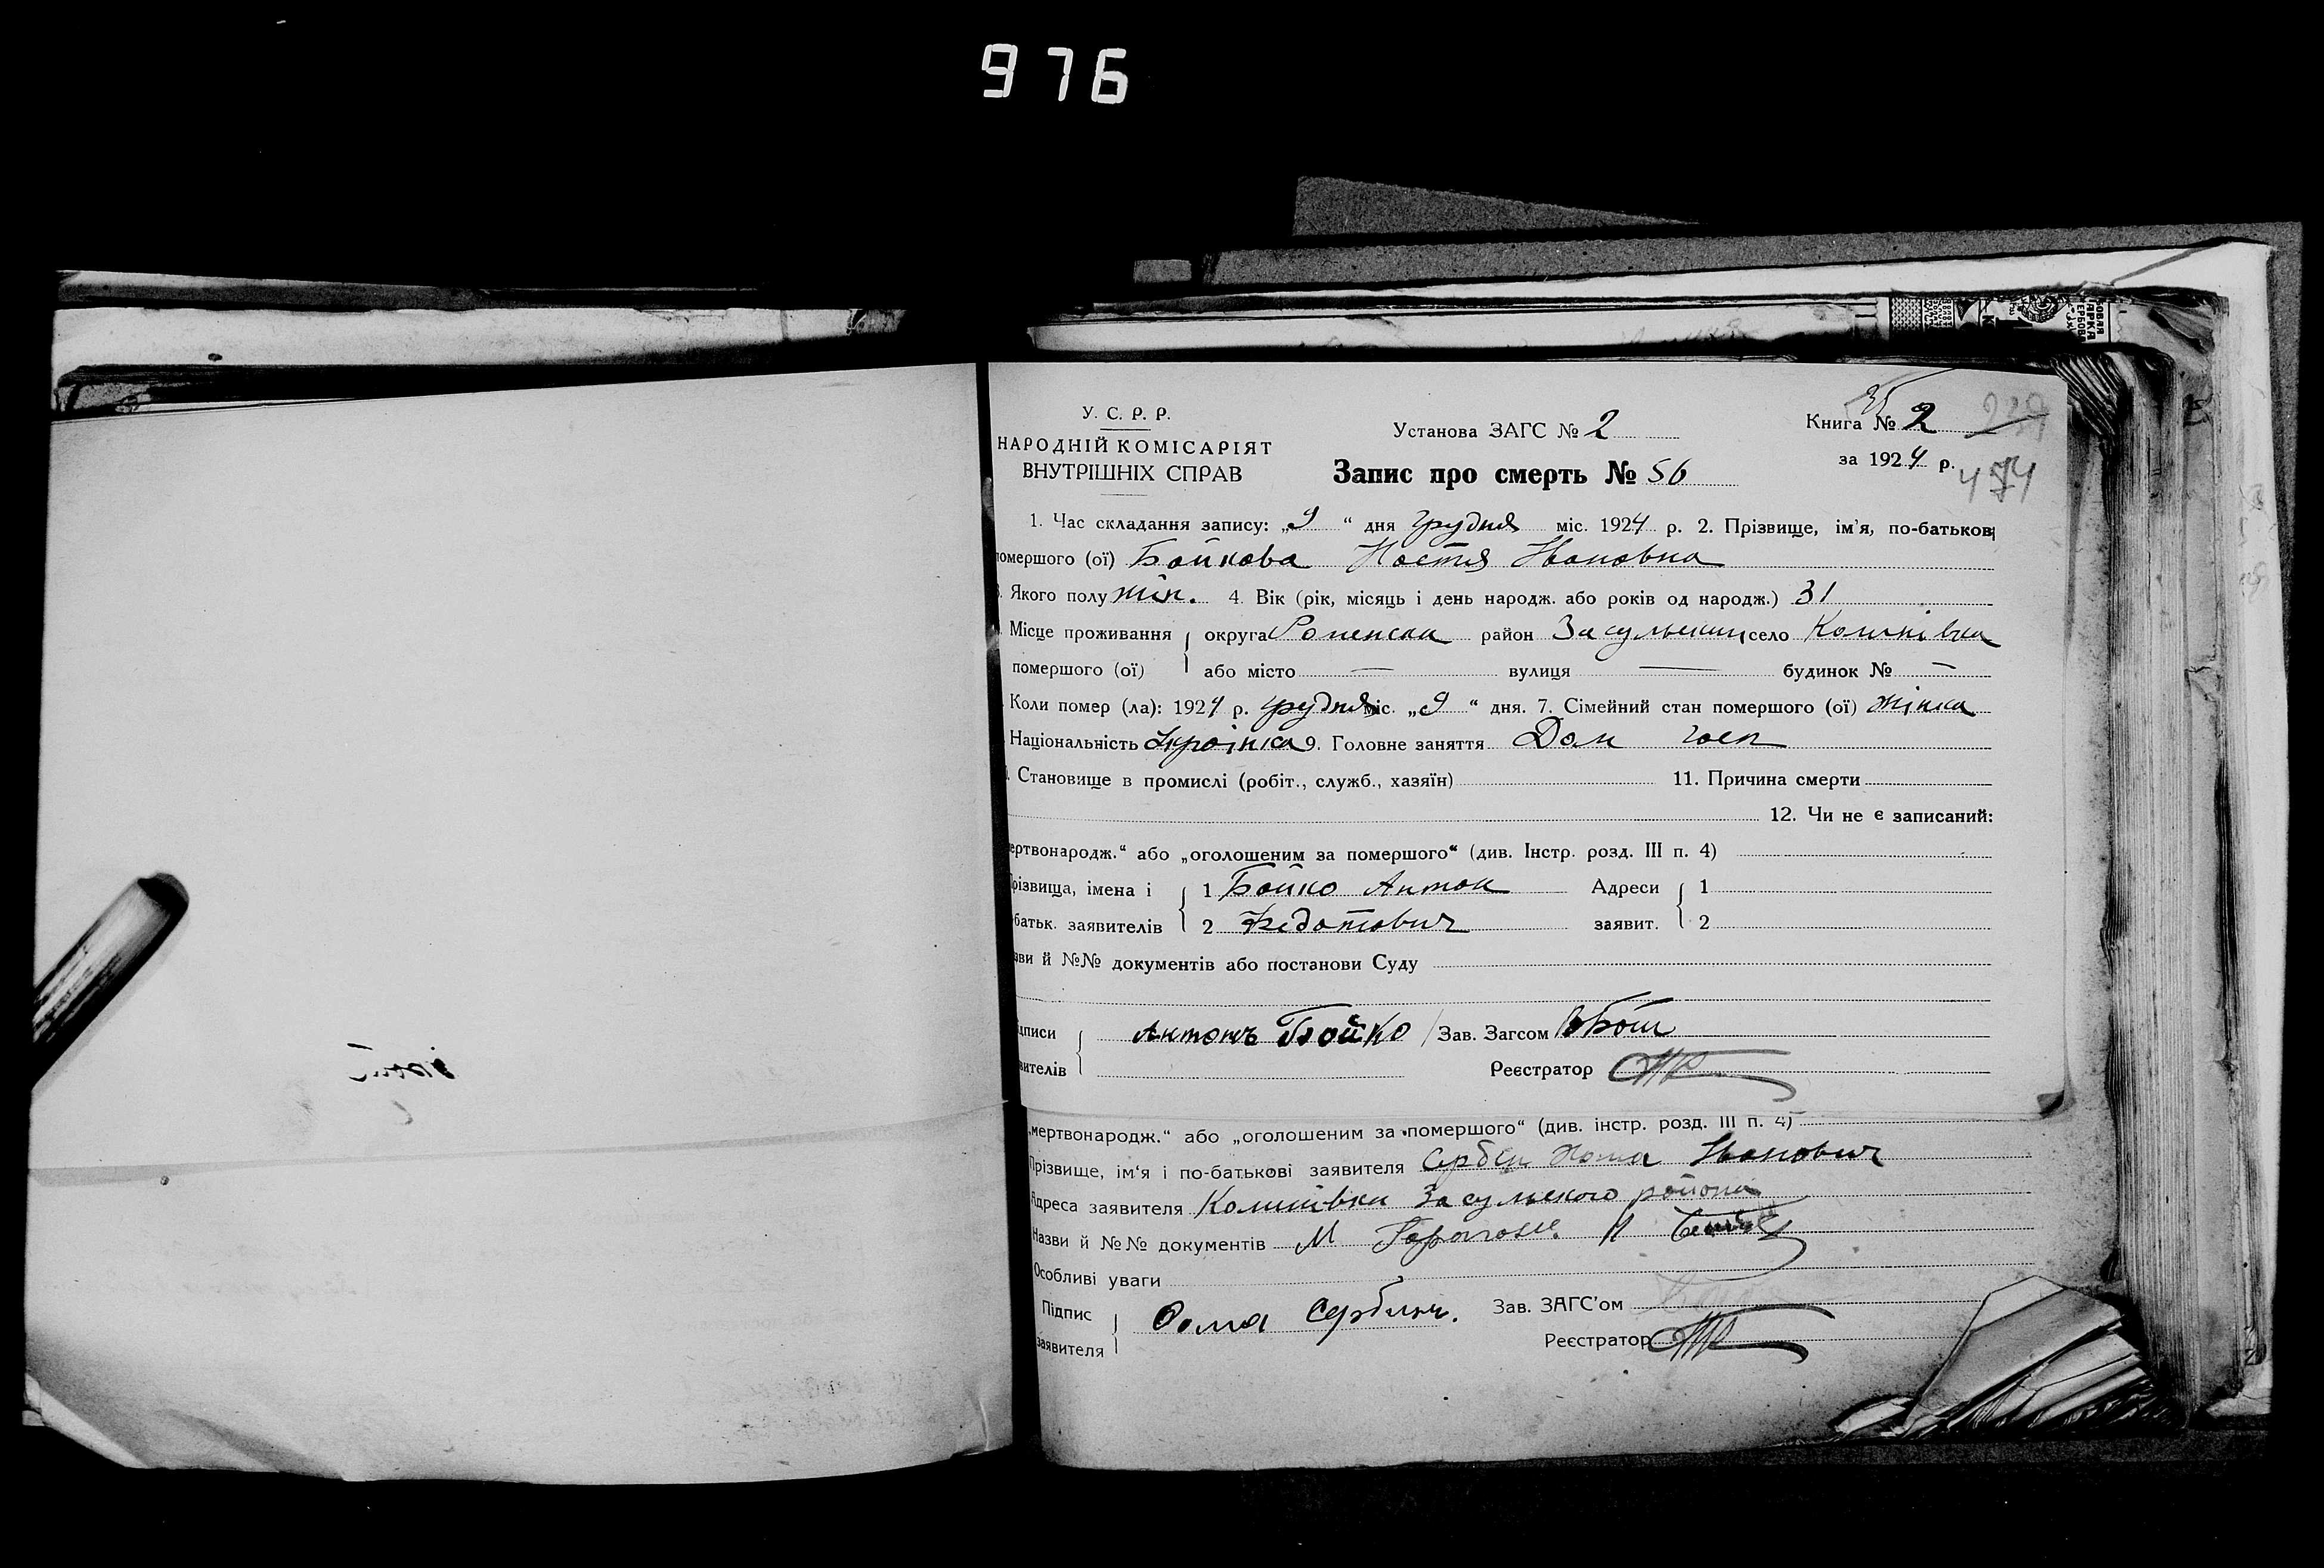 976
У. С. Р. Р.
НАРОДНІЙ КОМІСАРІЯТ
ВНУТРІШНІХ СПРАВ
Установа ЗАГС № 2
Запис про смерть № 56
Книга № 2
за 1924 р.
474
1. Час складання запису: „9“ дня грудня міс. 1924 р. 2. Прізвище, ім'я, по-батькові
помершого (ої) Бойкова Настя Ивановна
Якого полу жін. 4. Вік (рік, місяць і день народж. або років од народж.) 31
Місце проживання округа Роменска район Засульський село Колнківка
помершого (ої) або місто — вулиця — будинок № —
Коли помер (ла): 1924 р. грудня міс. „9“ дня. 7. Сімейний стан помершого (ої) жінка
Національність Украінка 9. Головне заняття Дом госп
Становище в промислі (робіт., служб., хазяїн) 11. Причина смерти
12. Чи не є записаний:
ертвонародж.“ або „оголошеним за помершого“ (див. Інстр. розд. III п. 4)
різвища, імена і 1 Бойко Антон Адреси 1
батьк. заявителів 2 Федотович заявит. 2
ви й №№ документів або постанови Суду
писи Антонъ Бойко Зав. Загсом
вителів Реєстратор
„мертвонародж.“ або „оголошеним за помершого“ (див. інстр. розд. III п. 4)
Прізвище, ім'я і по-батькові заявителя Сербин Хома Иванович
Адреса заявителя Засульского района
Назви й №№ документів
Особливі уваги
Підпис Фома Сербинъ. Зав. ЗАГС'ом
заявителя Реєстратор